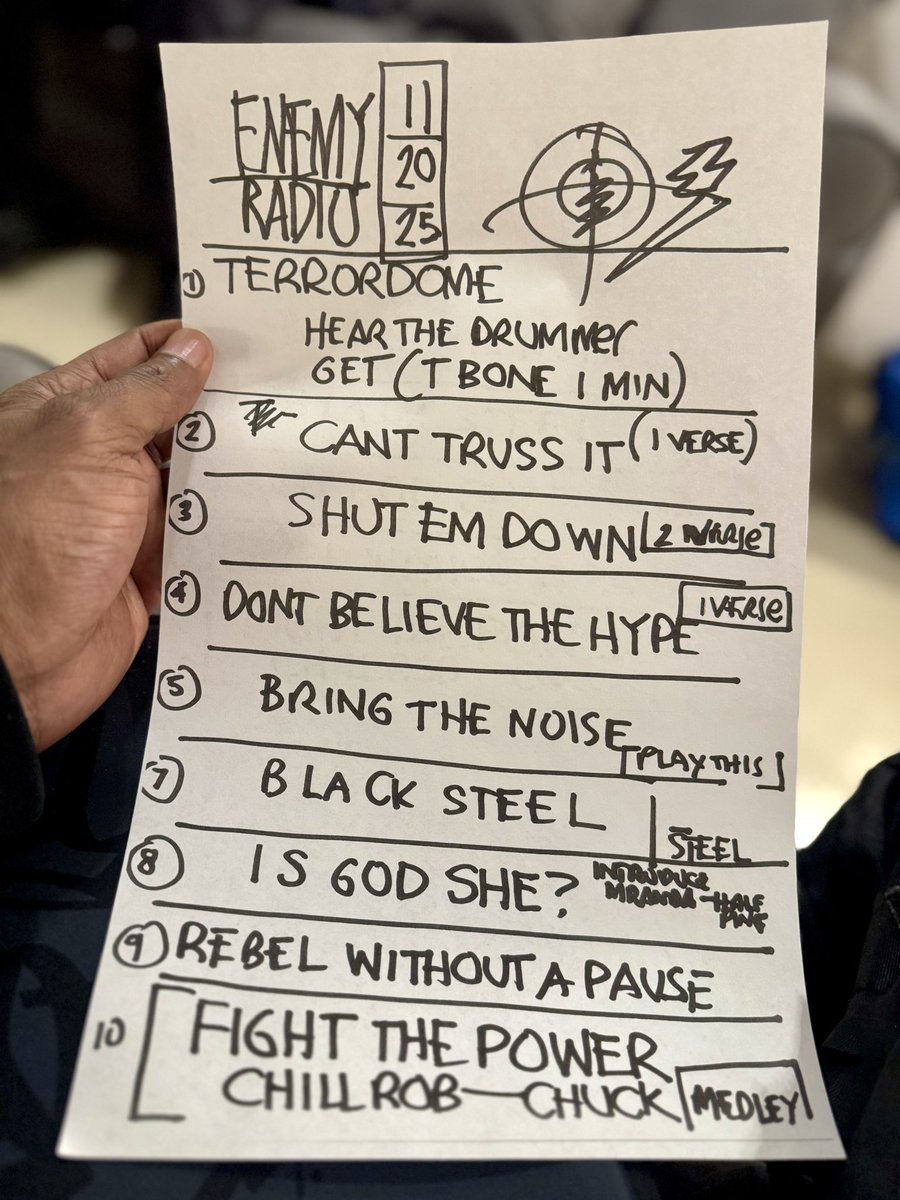 ENEMY
RADIO
11
20
25
1) TERRORDOME
HEAR THE DRUMMER
GET (T BONE 1 MIN)
2 CANT TRUSS IT (1 VERSE)
3 SHUT EM DOWN [2
4 DONT BELIEVE THE HYPE 1 VERSE
5 BRING THE NOISE
[PLAY THIS]
7 BLACK STEEL
STEEL
8 IS GOD SHE? INTRODUCE
HALF
PINT
9 REBEL WITHOUT A PAUSE
10 FIGHT THE POWER
CHILL ROB — CHUCK MEDLEY